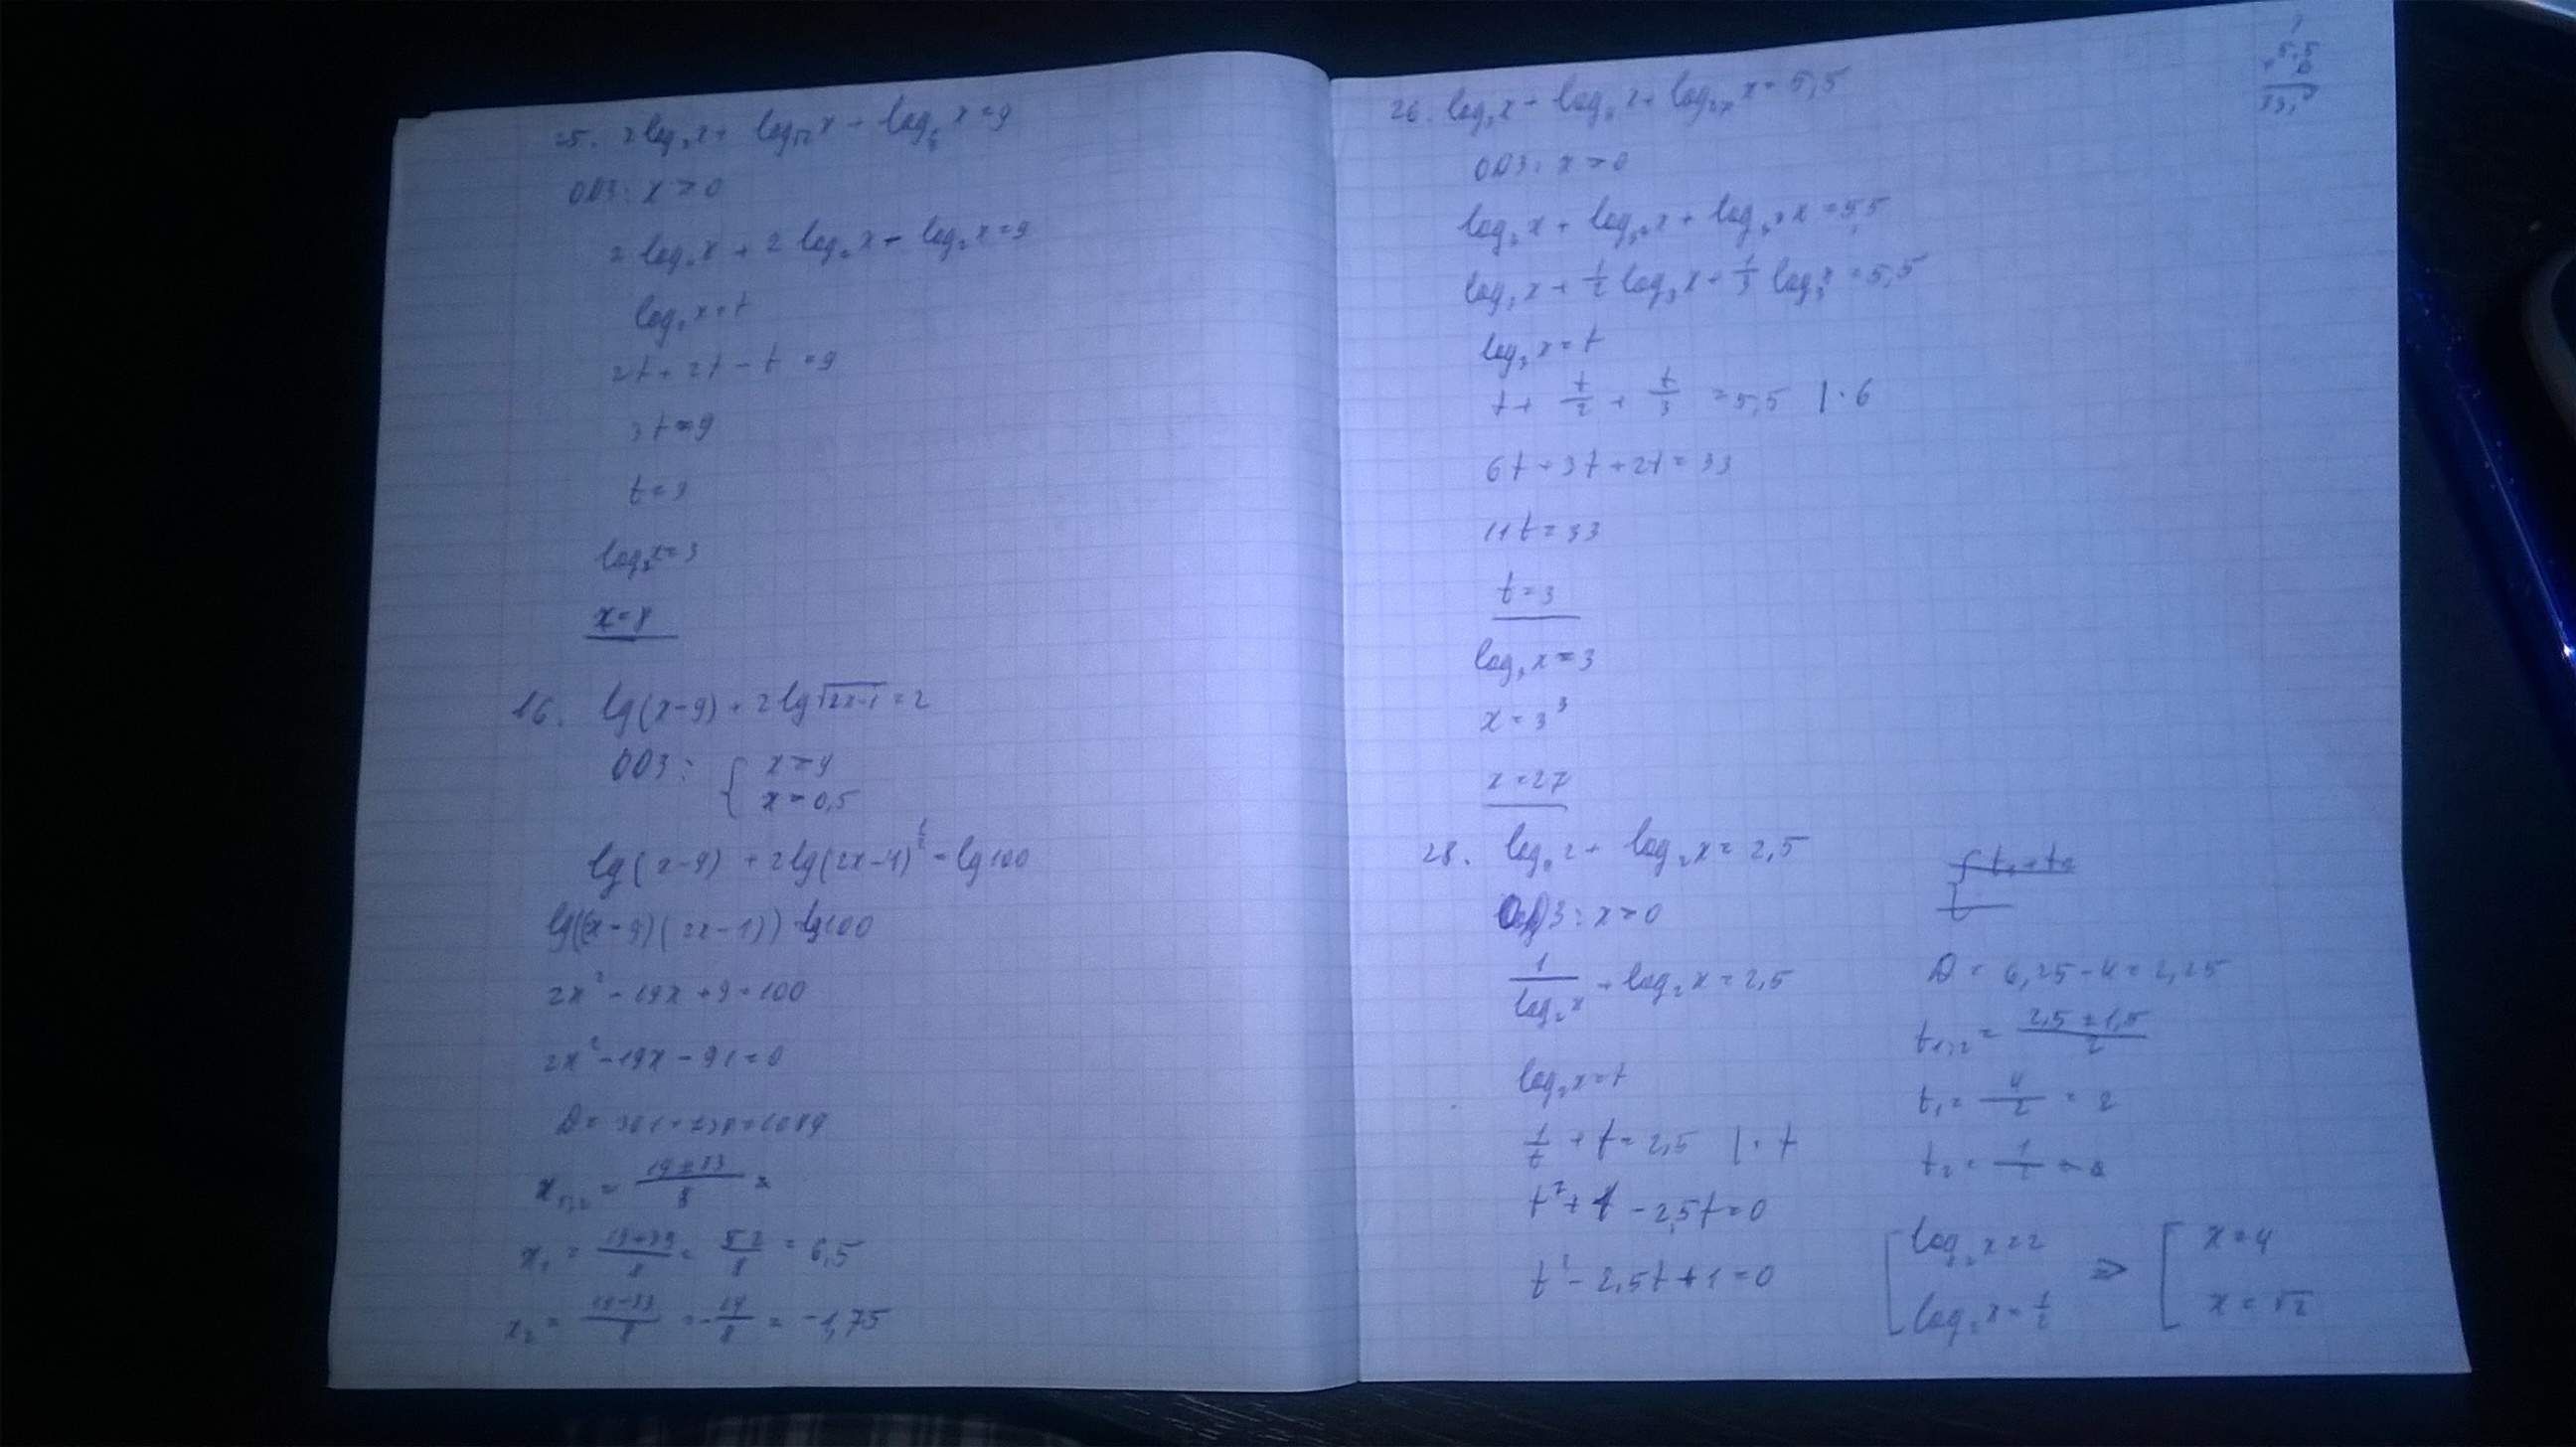 25. 2log₂x + log√2 x + log½ x = 9
ОДЗ: x > 0
2log₂x + 2log₂x - log₂x = 9
log₂x = t
2t + 2t - t = 9
3t = 9
t = 3
log₂x = 3
x = 8
16. lg(x-9) + 2lg√(2x-1) = 2
ОДЗ: { x > 9
x > 0,5
lg(x-9) + 2lg(2x-1)^½ = lg100
lg((x-9)(2x-1)) = lg100
2x² - 19x + 9 = 100
2x² - 19x - 91 = 0
D = 361 + 728 = 1089
x₁,₂ = (19±33)/8 =
x₁ = (19+33)/8 = 52/8 = 6,5
x₂ = (19-33)/8 = -14/8 = -1,75
26. log₃x + log₉x + log₂₇x = 5,5
ОДЗ: x > 0
log₃x + log₃²x + log₃³x = 5,5
log₃x + ½log₃x + ⅓log₃x = 5,5
log₃x = t
t + t/2 + t/3 = 5,5 | · 6
6t + 3t + 2t = 33
11t = 33
t = 3
log₃x = 3
x = 3³
x = 27
28. logₓ2 + log₂x = 2,5
ОДЗ: x > 0
1/log₂x + log₂x = 2,5
log₂x = t
1/t + t = 2,5 | · t
t² + 1 - 2,5t = 0
t² - 2,5t + 1 = 0
D = 6,25 - 4 = 2,25
t₁,₂ = (2,5±1,5)/2
t₁ = 4/2 = 2
t₂ = 1/2
[ log₂x = 2 ⇒ [ x = 4
log₂x = ½ x = √2